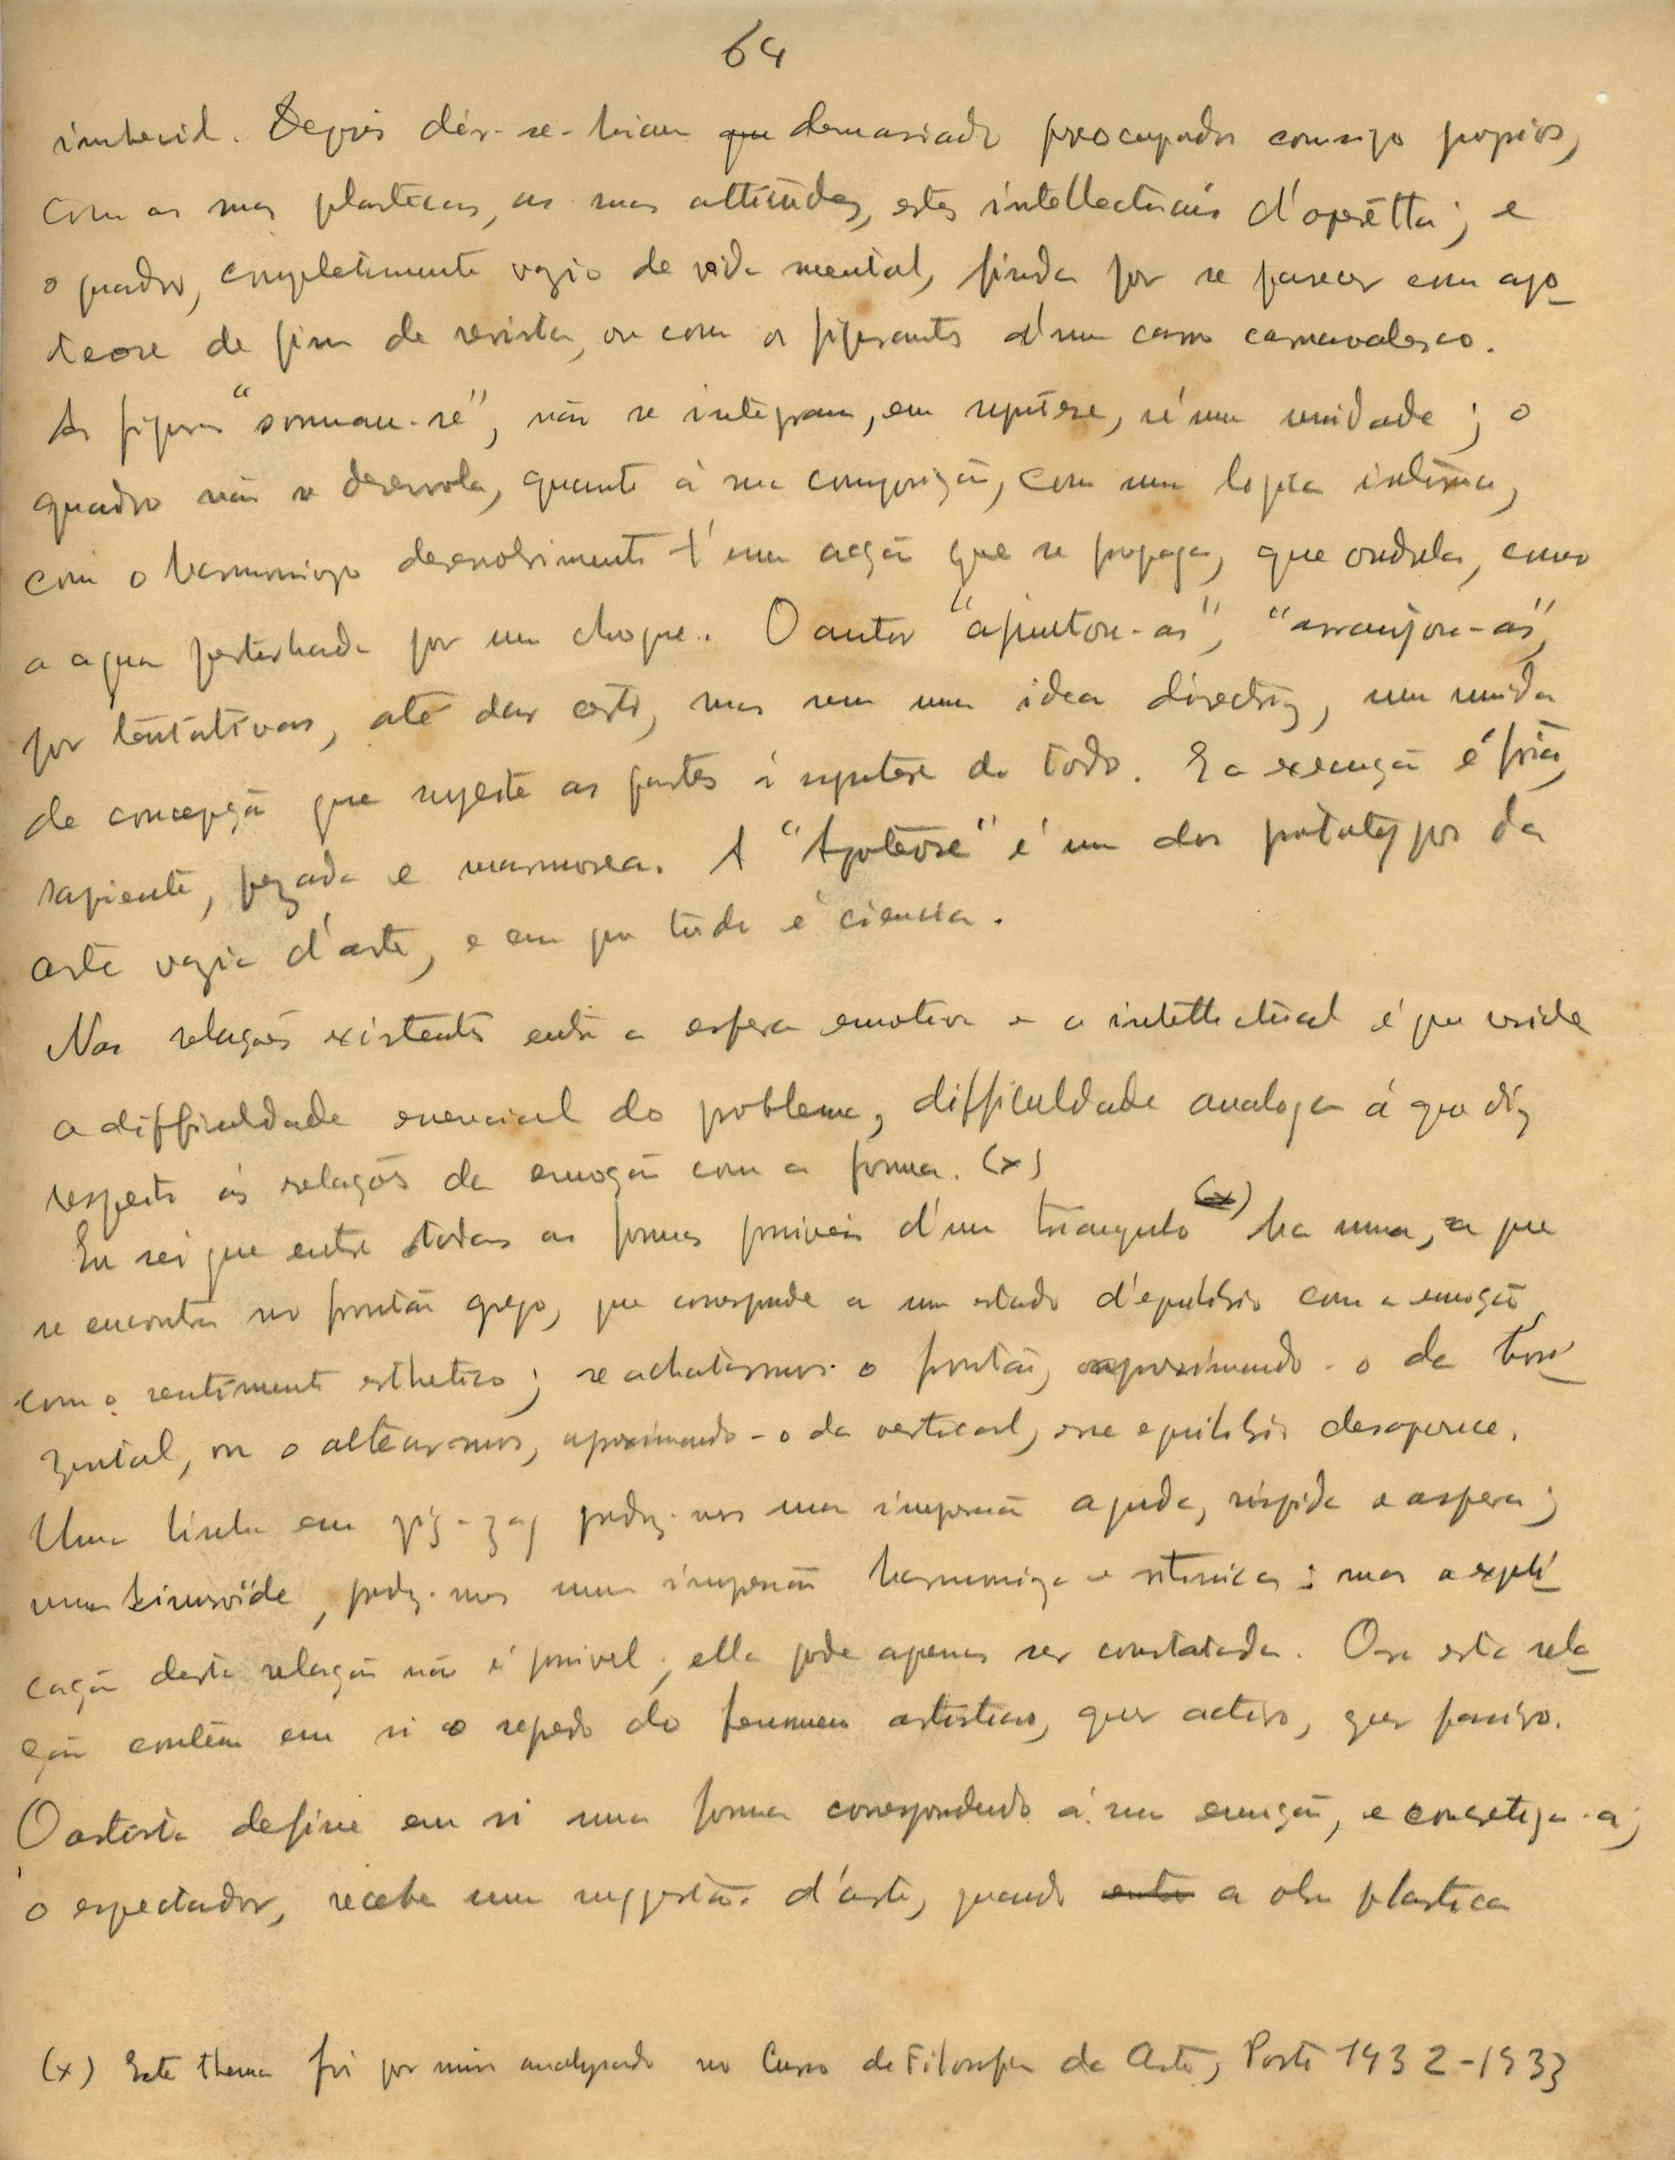 64
imbecil. Depois dir-se-hiam que demasiado preocupados comsigo proprios,
com as suas plasticas, as suas attitudes, estes intellectuais d'operetta; e
o quadro, completamente vazio de vida mental, finda por se parecer com apo-
teose de fim de revista, ou com os figurantes d'um carro carnavalesco.
As figuras "sommam-se", não se integram, em synthese, n'uma unidade; o
quadro não se desenrola, quanto á sua composição, com uma logica intima,
com o harmonioso desenvolvimento d'uma acção que se propaga, que ondula, como
a agua perturbada por um choque. O autor "ajuntou-as", "arranjou-as",
por tentativas, até dar certo, mas sem uma idea directriz, uma unida
de concepção que sujeite as partes á synthese do todo. E a execução é fria,
sapiente, pezada e marmorea. A "Apoteose" é um dos prototypos da
arte vazia d'arte, e em que tudo é ciencia.
Nas relações existentes entre a esfera emotiva e a intellectual é que reside
a difficuldade essencial do problema, difficuldade analoga á que diz
respeito ás relações da emoção com a forma. (x)
Eu sei que entre todas as formas possiveis d'um triangulo (x) ha uma, a que
se encontra no frontão grego, que corresponde a um estado d'equilibrio com a emoção
com o sentimento esthetico; se achatarmos o frontão, aproximando-o da hori-
zontal, ou o altearmos, aproximando-o da vertical, esse equilibrio desaparece.
Uma linha em zig-zag produz-nos uma impressão aguda, rispida e aspera;
uma sinusoïde, produz-nos uma impressão harmoniosa e ritmica; mas a expli-
cação desta relação não é possivel; ella pode apenas ser constatada. Ora esta rela-
ção contém em si o segredo do fenomeno artistico, quer activo, quer passivo.
O artista define em si uma forma correspondendo á sua emoção, e concretiza-a;
o espectador, recebe uma suggestão d'arte, quando entre a obra plastica
(x) Este thema foi por mim analysado no Curso de Filosofia da Arte, Porto 1932-1933